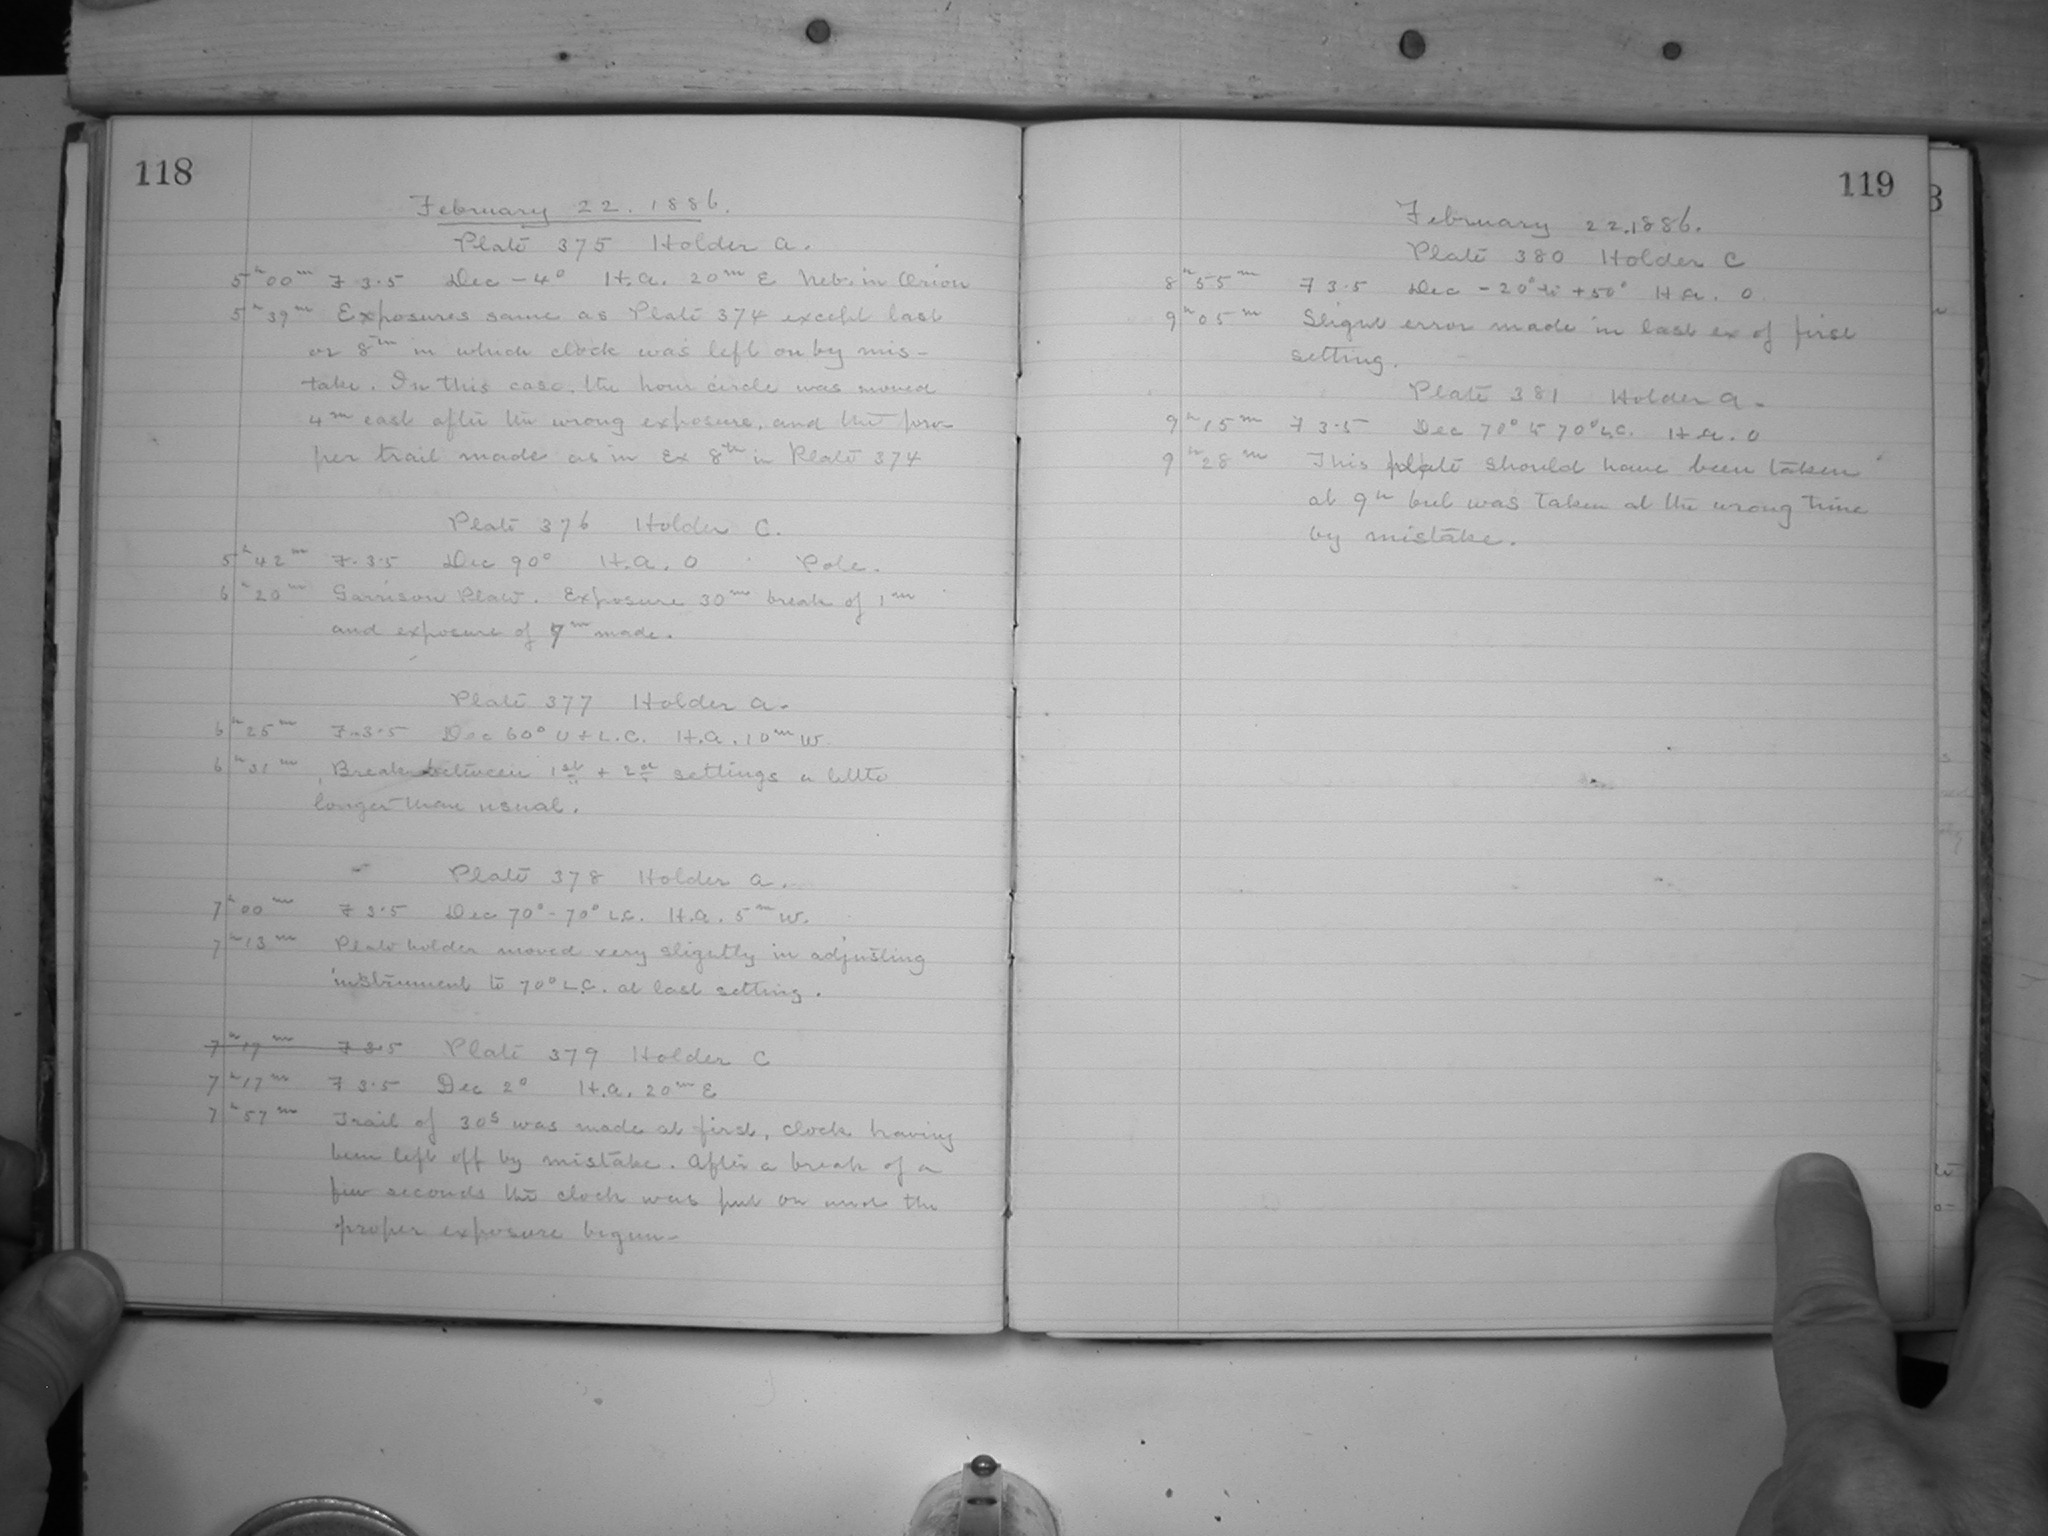 118
February 22. 1886.
Plate 375 Holder A.
5h 00m F 3.5 Dec -4° H.A. 20m E Neb. in Orion
5h 39m Exposures same as Plate 374 except last
or 8th in which clock was left on by mis-
take. In this case, the hour circle was moved
4m east after the wrong exposure, and the pro-
per trail made as in Ex 8th in Plate 374
Plate 376 Holder C.
5h 42m F. 3.5 Dec 90° H.A. 0 Pole.
6h 20m Garrison Plate. Exposure 30m break of 1m
and exposure of 7m made.
Plate 377 Holder A.
6h 25m F. 3.5 Dec 60° U + L.C. H.A. 10m W.
6h 31m Break between 1st + 2d settings a little
longer than usual.
Plate 378 Holder A.
7h 00m F 3.5 Dec 70° - 70° L.C. H.A. 5m W.
7h 13m Plate holder moved very slightly in adjusting
instrument to 70° L.C. at last setting.
7h 17m F 3.5 Plate 379 Holder C
7h 17m F 3.5 Dec 2° H.A. 20m E
7h 57m Trail of 30s was made at first, clock having
been left off by mistake. After a break of a
few seconds the clock was put on and the
proper exposure begun-
119
February 22. 1886.
Plate 380 Holder C
8h 55m F 3.5 Dec -20° to +50° H.A. 0.
9h 05m Slight error made in last ex of first
setting.
Plate 381 Holder A.
9h 15m F 3.5 Dec 70° to 70° L.C. H.A. 0
9h 28m This plate should have been taken
at 9h but was taken at the wrong time
by mistake.